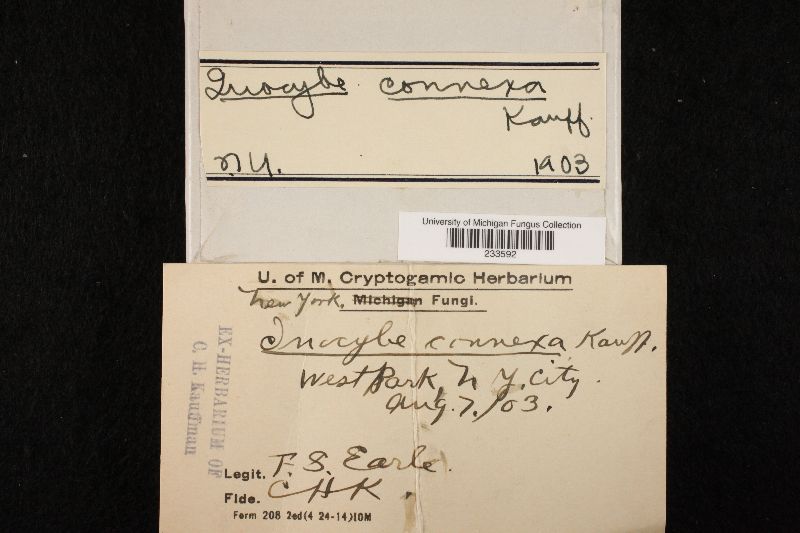 Inocybe connexa
Kauff.
N.Y. 1903
University of Michigan Fungus Collection
233592
U. of M. Cryptogamic Herbarium
New York. Michigan Fungi.
Inocybe connexa Kauff.
West Park, N.Y. City.
Aug. 7, /03.
EX-HERBARIUM OF
C. H. Kauffman
Legit. F. S. Earle.
Fide. CHK.
Form 208 2ed(4 24-14)10M